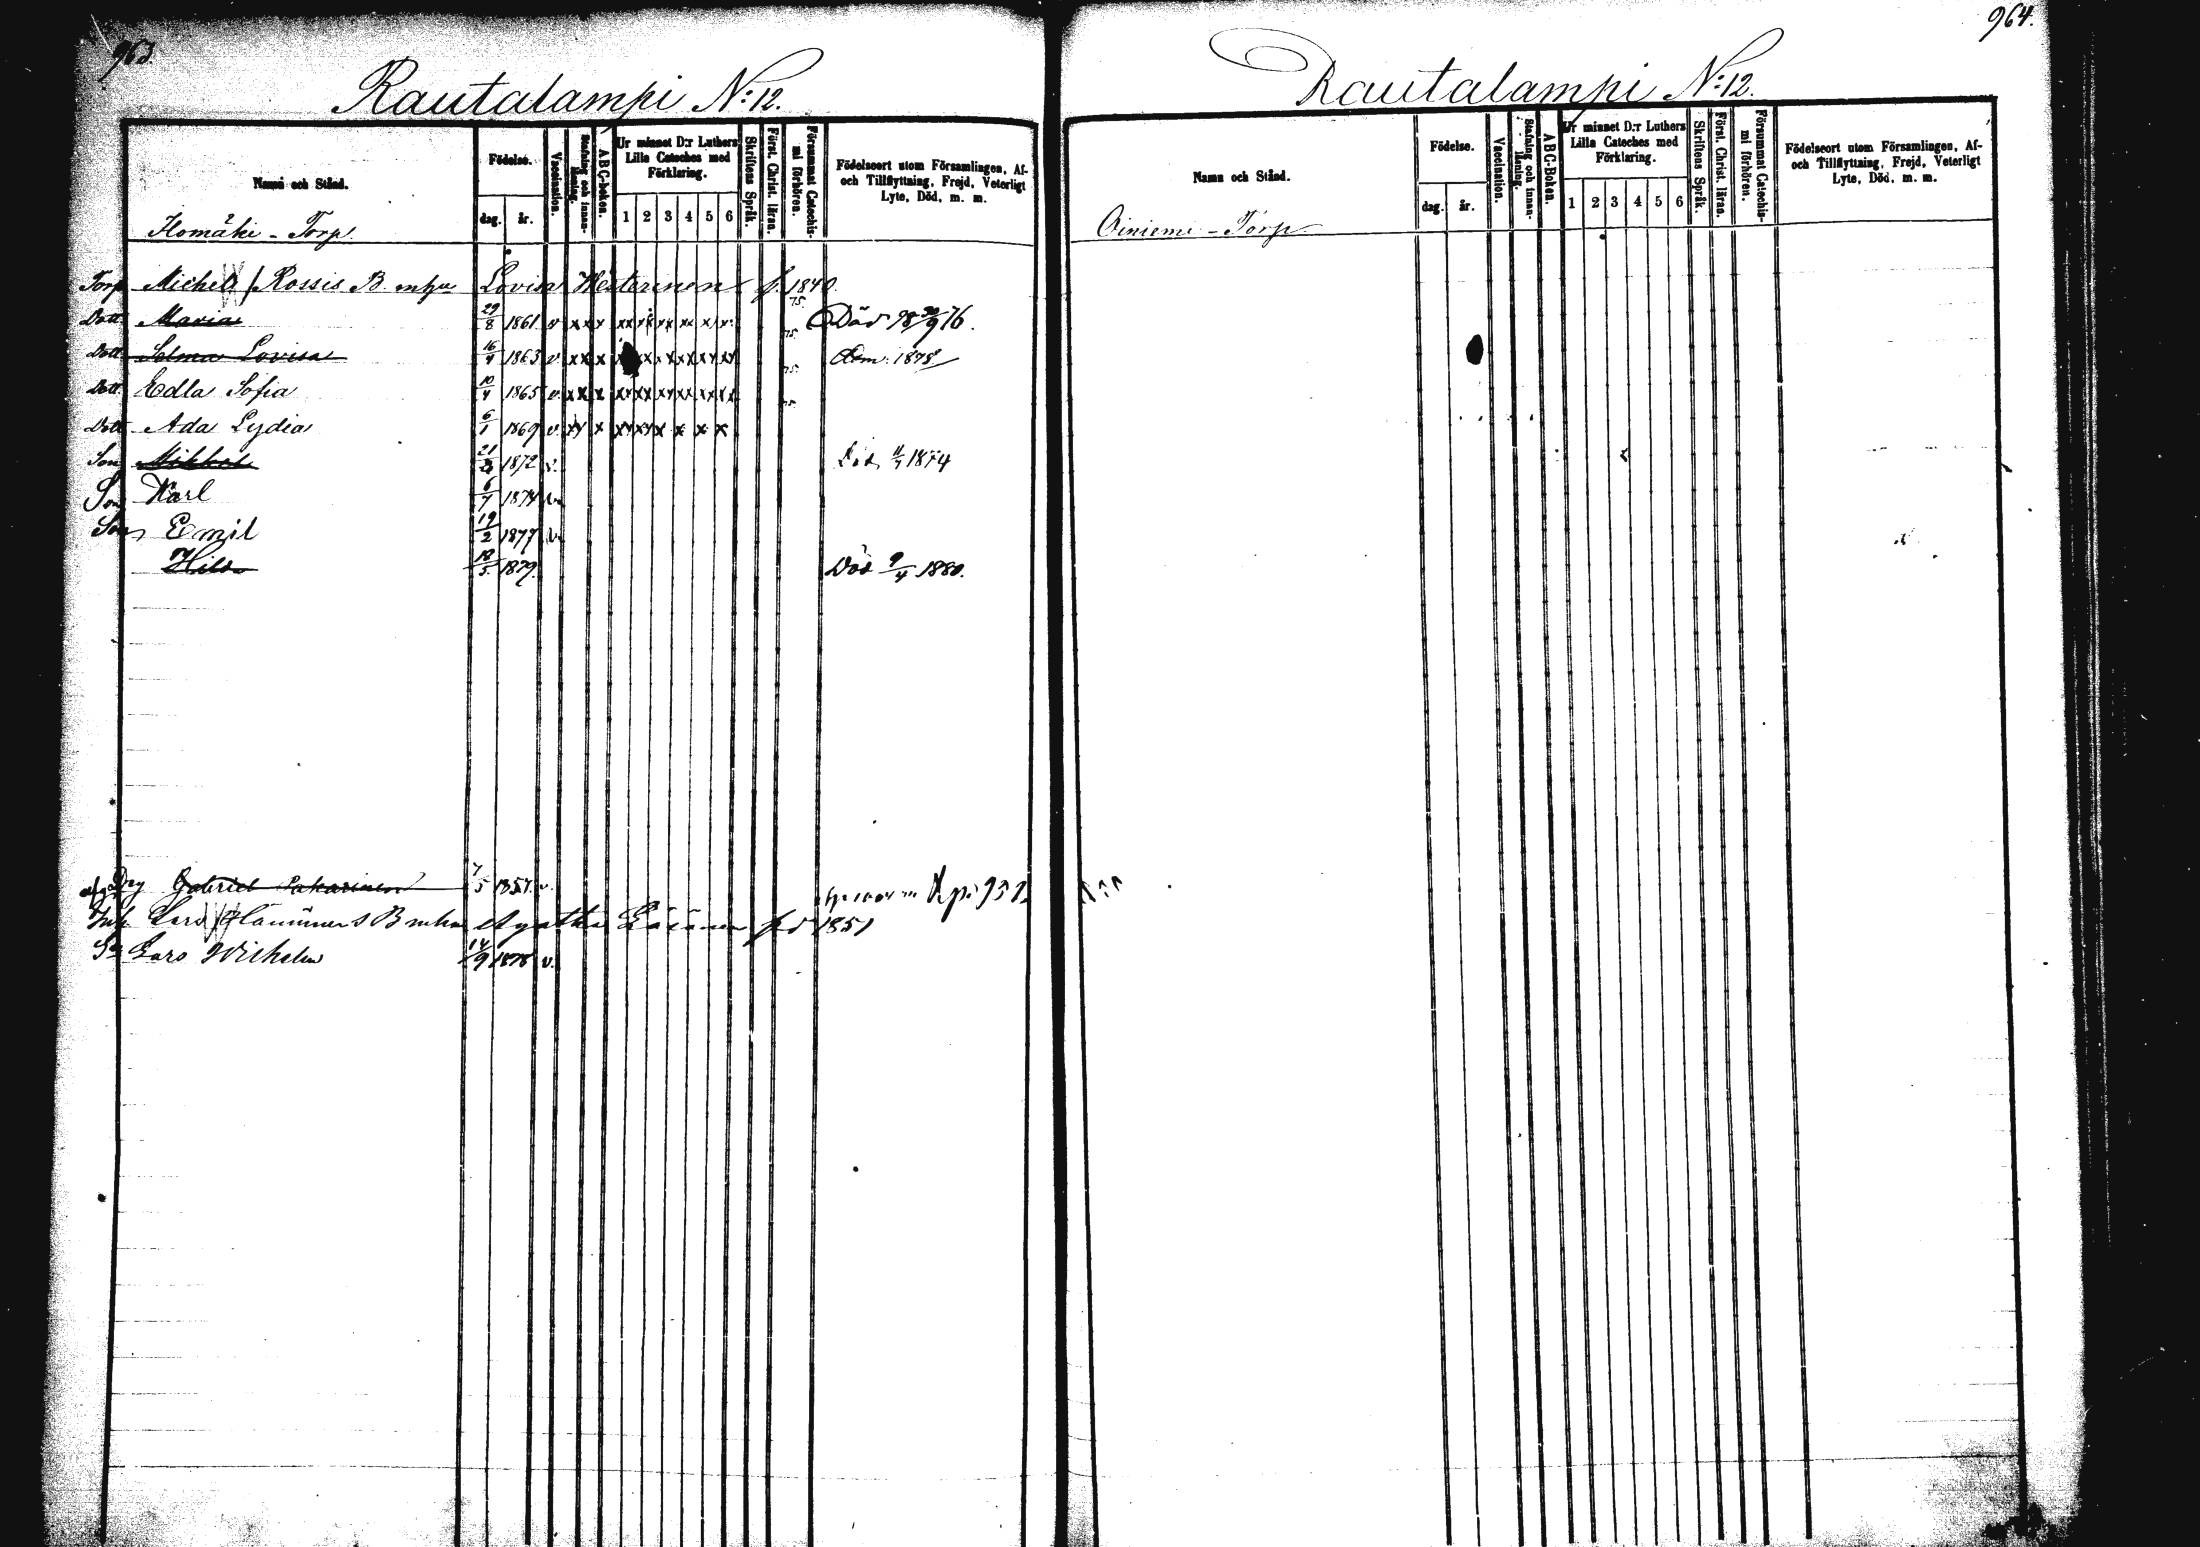 963.
Rautalampi N:12.
Namn och Stånd.
Födelse.
dag. år.
Vaccination.
Stafning och innan-läsning.
A B C-boken.
Ur minnet D:r Luthers Lilla Cateches med Förklaring.
1 2 3 4 5 6
Skriftens Språk.
Först. Christ. läran.
Försummat Catechis-mi förhören.
Födelseort utom Församlingen, Af- och Tillflyttning, Frejd, Veterligt Lyte, Död, m. m.
Homäki - Torp.
Torp Michel Rossis B. mhu Lovisa Westerinen f. 1840.
Dott Maria 29/8 1861 v Död 30/9 76.
Dott Selma Lovisa 16/4 1863 v 1878
Dott Edla Sofia 10/4 1865 v
Dott Ada Lydia 6/1 1869 v
Son Mikkel 1872 v. Död 1874
Son Karl 6/7 1874 v.
Son Emil 19/2 1877 v.
Hilda 18/5 1879. Död 9/4 1880.
Gabriel Pakarinen 7/5 1857. v.
Lars B mhu Agatha 1851
Sn Lars Wilhelm 14/9 1878 v.
964.
Rautalampi N:12.
Namn och Stånd.
Födelse.
dag. år.
Vaccination.
Stafning och innan-läsning.
A B C-Boken.
Ur minnet D:r Luthers Lilla Cateches med Förklaring.
1 2 3 4 5 6
Skriftens Språk.
Först. Christ. läran.
Försummat Catechis-mi förhören.
Födelseort utom Församlingen, Af- och Tillflyttning, Frejd, Veterligt Lyte, Död, m. m.
Oiniemi - Torp